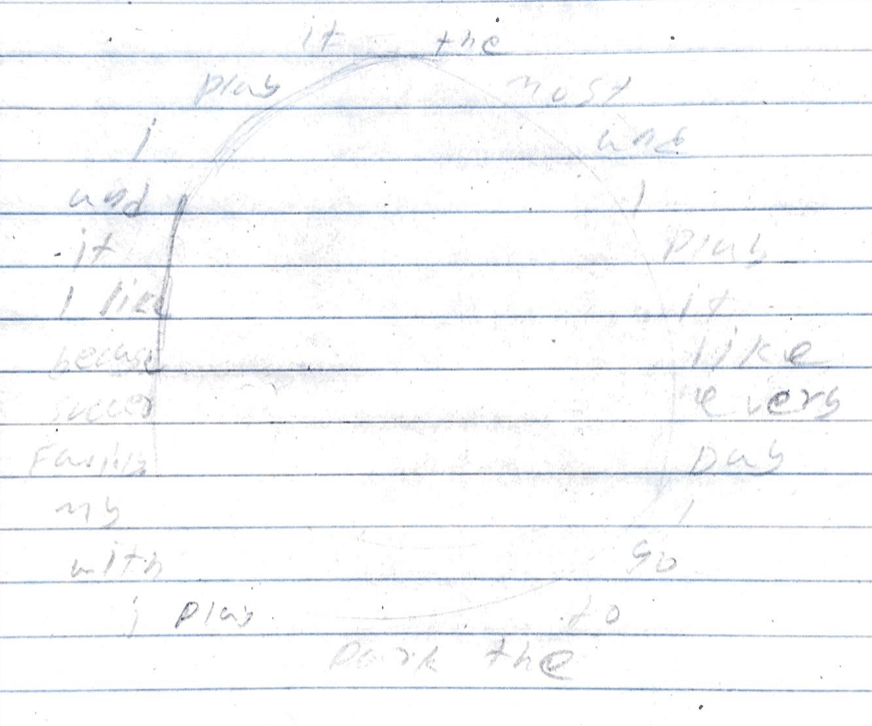 it the
play most
i and
and I
it play
I like it
becuse like
soccer every
Family Day
my I
with go
i play to
park the